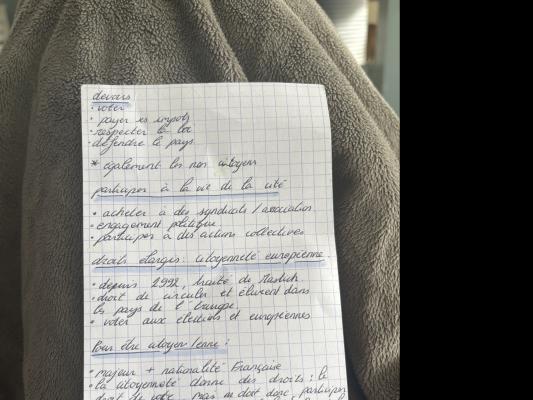 devoirs
• voter
• payer ses impots
• respecter la loi
• défendre le pays
* également les non citoyens
participer à la vie de la cité
• acheter à des syndicats / association
• engagement politique
• participer à des actions collectives
droits élargis : citoyenneté européenne
• depuis 1992, traité de Mastrich
• droit de circuler et étudient dans
les pays de l'Europe
• voter aux élections et européennes
Pour être citoyen/enne :
• majeur + nationalité Française
• la citoyenneté donne des droits : le
droit de vote, mais ne doit donc participer